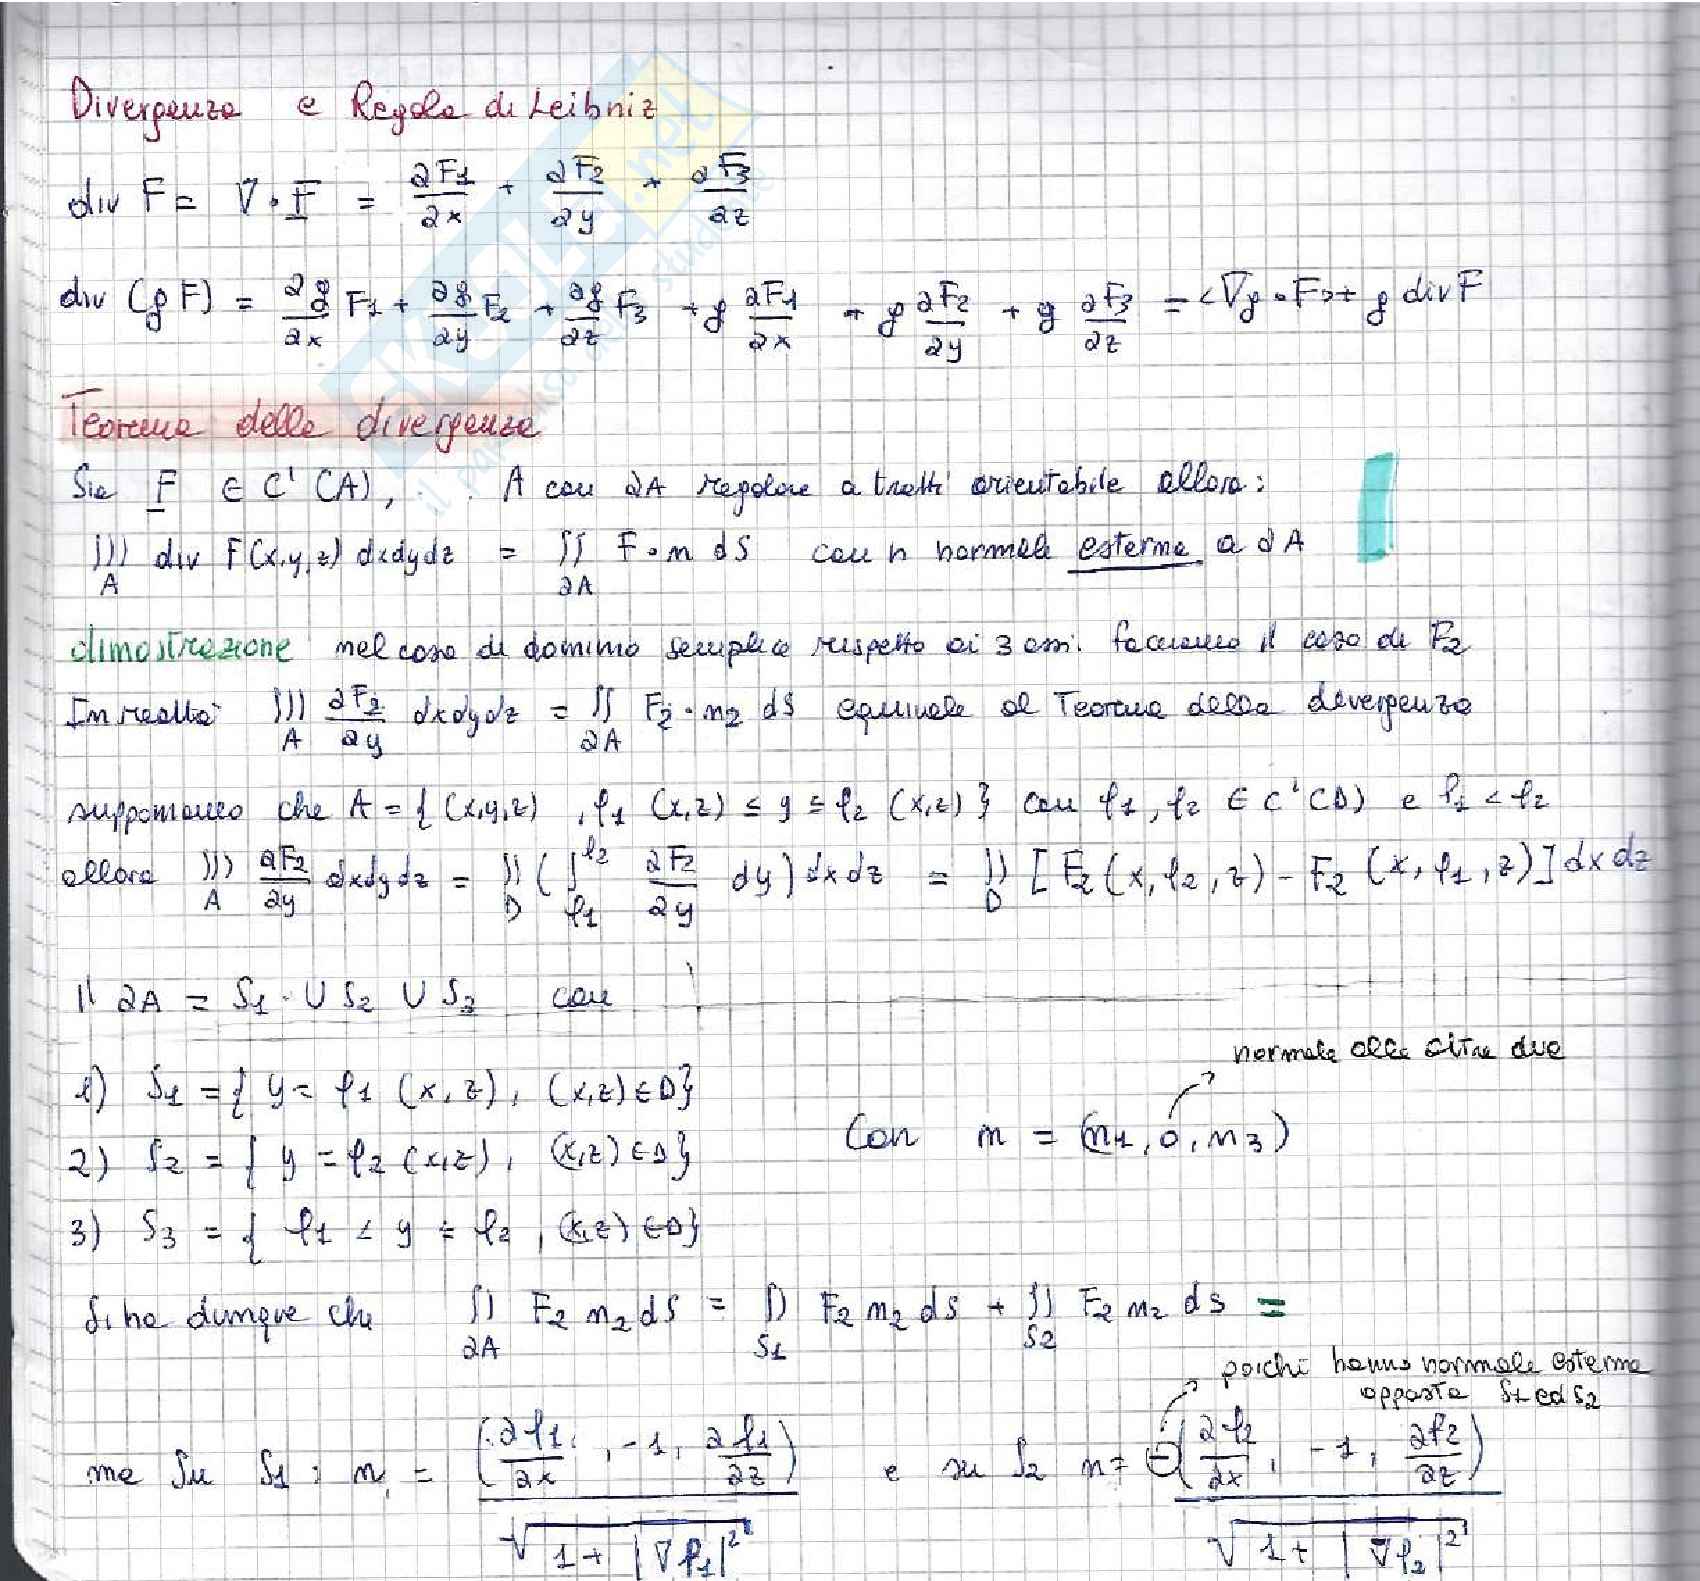 Divergenza e Regola di Leibniz
div F = ∇ · F = ∂F1/∂x + ∂F2/∂y + ∂F3/∂z
div (gF) = ∂g/∂x F1 + ∂g/∂y F2 + ∂g/∂z F3 + g ∂F1/∂x + g ∂F2/∂y + g ∂F3/∂z = <∇g · F> + g div F
Teorema della divergenza
Sia F ∈ C¹(A), A con ∂A regolare a tratti orientabile allora:
∭_A div F(x,y,z) dxdydz = ∬_∂A F · n dS con n normale esterna a ∂A
dimostrazione nel caso di dominio semplice rispetto ai 3 assi. facciamo il caso di F2
In realtà ∭_A ∂F2/∂y dxdydz = ∬_∂A F2 · n2 dS equivale al Teorema della divergenza
supponiamo che A = { (x,y,z), φ1 (x,z) ≤ y ≤ φ2 (x,z) } con φ1, φ2 ∈ C¹(D) e φ1 < φ2
allora ∭_A ∂F2/∂y dxdydz = ∬_D ( ∫_φ1^φ2 ∂F2/∂y dy ) dxdz = ∬_D [ F2 (x, φ2, z) - F2 (x, φ1, z) ] dxdz
Il ∂A = S1 ∪ S2 ∪ S3 con
normale alle altre due
1) S1 = { y = φ1 (x, z), (x,z) ∈ D }
Con n = (n1, 0, n3)
2) S2 = { y = φ2 (x,z), (x,z) ∈ D }
3) S3 = { φ1 ≤ y ≤ φ2, (x,z) ∈ D }
Si ha dunque che ∬_∂A F2 n2 dS = ∬_S1 F2 n2 dS + ∬_S2 F2 n2 dS =
poichè hanno normale esterna
opposta S1 ed S2
ma su S1: n = (∂φ1/∂x, -1, ∂φ1/∂z) / √(1 + |∇φ1|²) e su S2 n = -(∂φ2/∂x, -1, ∂φ2/∂z) / √(1 + |∇φ2|²)